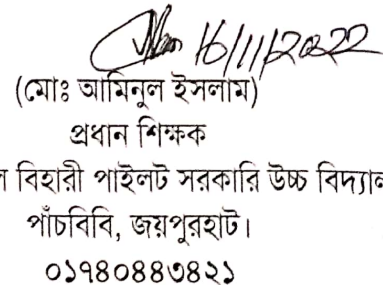 16/11/2022
(মোঃ আমিনুল ইসলাম)
প্রধান শিক্ষক
বিহারী পাইলট সরকারি উচ্চ
পাঁচবিবি, জয়পুরহাট।
০১৭৪০৪৪৩৪২১